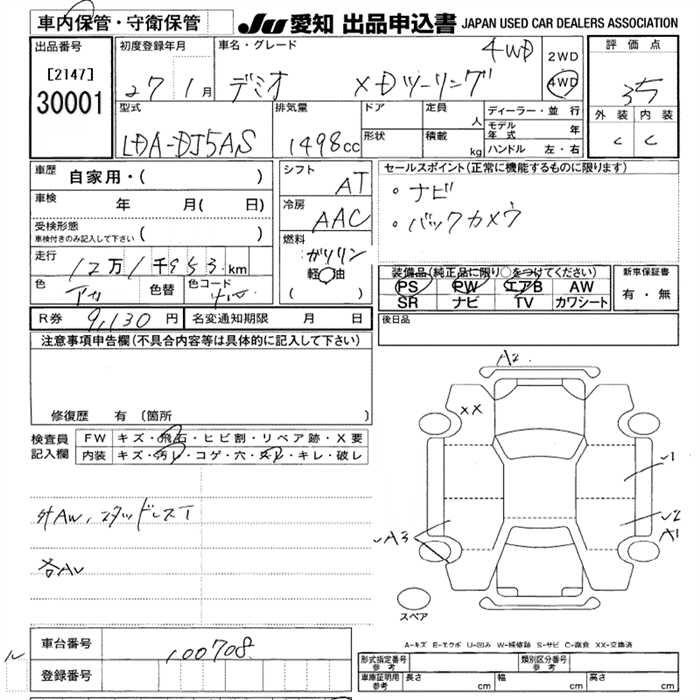 車内保管・守衛保管
JU 愛知 出品申込書 JAPAN USED CAR DEALERS ASSOCIATION
出品番号
[2147]
30001
初度登録年月
27 1月
車名・グレード
4WD
デミオ XDツーリング
2WD
4WD
評価点
3.5
外装 内装
C C
型式
LDA-DJ5AS
排気量
1498cc
ドア
形状
定員 人
積載 kg
ディーラー・並行
モデル年式 年
ハンドル 左・右
車歴 自家用・( )
車検 年 月( 日)
受検形態
車検付きのみ記入して下さい ( )
走行 12万1千953km
色 色替 色コード
シフト
AT
冷房
AAC
燃料
ガソリン
軽 油
( )
セールスポイント(正常に機能するものに限ります)
・ナビ
・バックカメラ
装備品(純正品に限り○をつけてください)
PS PW エアB AW
SR ナビ TV カワシート
新車保証書
有・無
R券 9,130円 名変通知期限 月 日
後日品
注意事項申告欄(不具合内容等は具体的に記入して下さい)
修復歴 有(箇所 )
検査員記入欄
FW キズ・飛石・ヒビ割・リペア跡・X要
内装 キズ・汚レ・コゲ・穴・スレ・キレ・破レ
外AW,スタッドレスT
各AU
A2
XX
A3
A1
スペア
A-キズ E-エクボ U-凹み W-補修跡 S-サビ C-腐食 XX-交換済
車台番号 100708
登録番号
形式指定番号参考
類別区分番号参考
車庫証明用参考 長さ cm 幅 cm 高さ cm